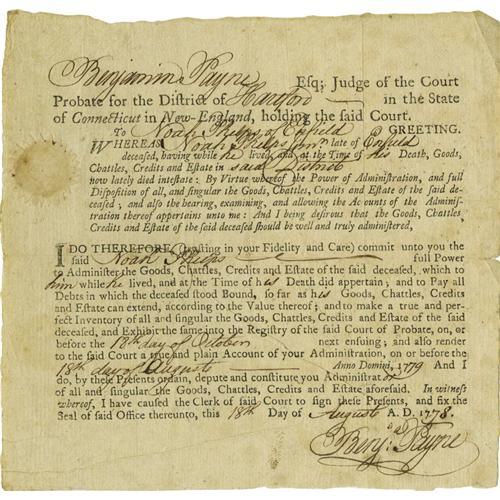 Benjamin Payne Esq; Judge of the Court
Probate for the District of Hartford in the State
of Connecticut in New-England, holding the said Court.
To Noah Phelps of Enfield GREETING.
WHEREAS Noah Phelps Junr late of Enfield
deceased, having while he lived, and at the Time of his Death, Goods,
Chattles, Credits and Estate in said District
now lately died intestate: By Virtue whereof the Power of Administration, and full
Disposition of all, and singular the Goods, Chattles, Credits and Estate of the said de-
ceased; and also the hearing, examining, and allowing the Accounts of the Adminis-
tration thereof appertains unto me: And I being desirous that the Goods, Chattles,
Credits and Estate of the said deceased should be well and truly administered,
I DO THEREFORE (trusting in your Fidelity and Care) commit unto you the
said Noah Phelps full Power
to Administer the Goods, Chattles, Credits and Estate of the said deceased, which to
him while he lived, and at the Time of his Death did appertain; and to Pay all
Debts in which the deceased stood Bound, so far as his Goods, Chattles, Credits
and Estate can extend, according to the Value thereof; and to make a true and per-
fect Inventory of all and singular the Goods, Chattles, Credits and Estate of the said
deceased, and Exhibit the same into the Registry of the said Court of Probate, on, or
before the 18th day of October next ensuing; and also render
to the said Court a true and plain Account of your Administration, on or before the
18th day of Augusts Anno Domini, 1779 And I
do, by these Presents ordain, depute and constitute you Administrator
of all and singular the Goods, Chattles, Credits and Estate aforesaid. In witness
whereof, I have caused the Clerk of said Court to sign these Presents, and fix the
Seal of said Office thereunto, this 18th Day of Augusts A. D. 1778.
Benj: Payne